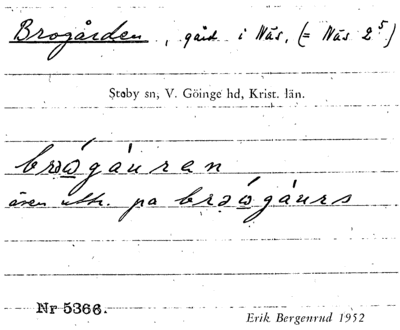 Brogården, gård i Näs, (= Näs 2⁵)
Stoby sn, V. Göinge hd, Krist. län.
brə́ωgáuran
även uttr. pa brə́ωgáurs
Nr 5366.
Erik Bergenrud 1952